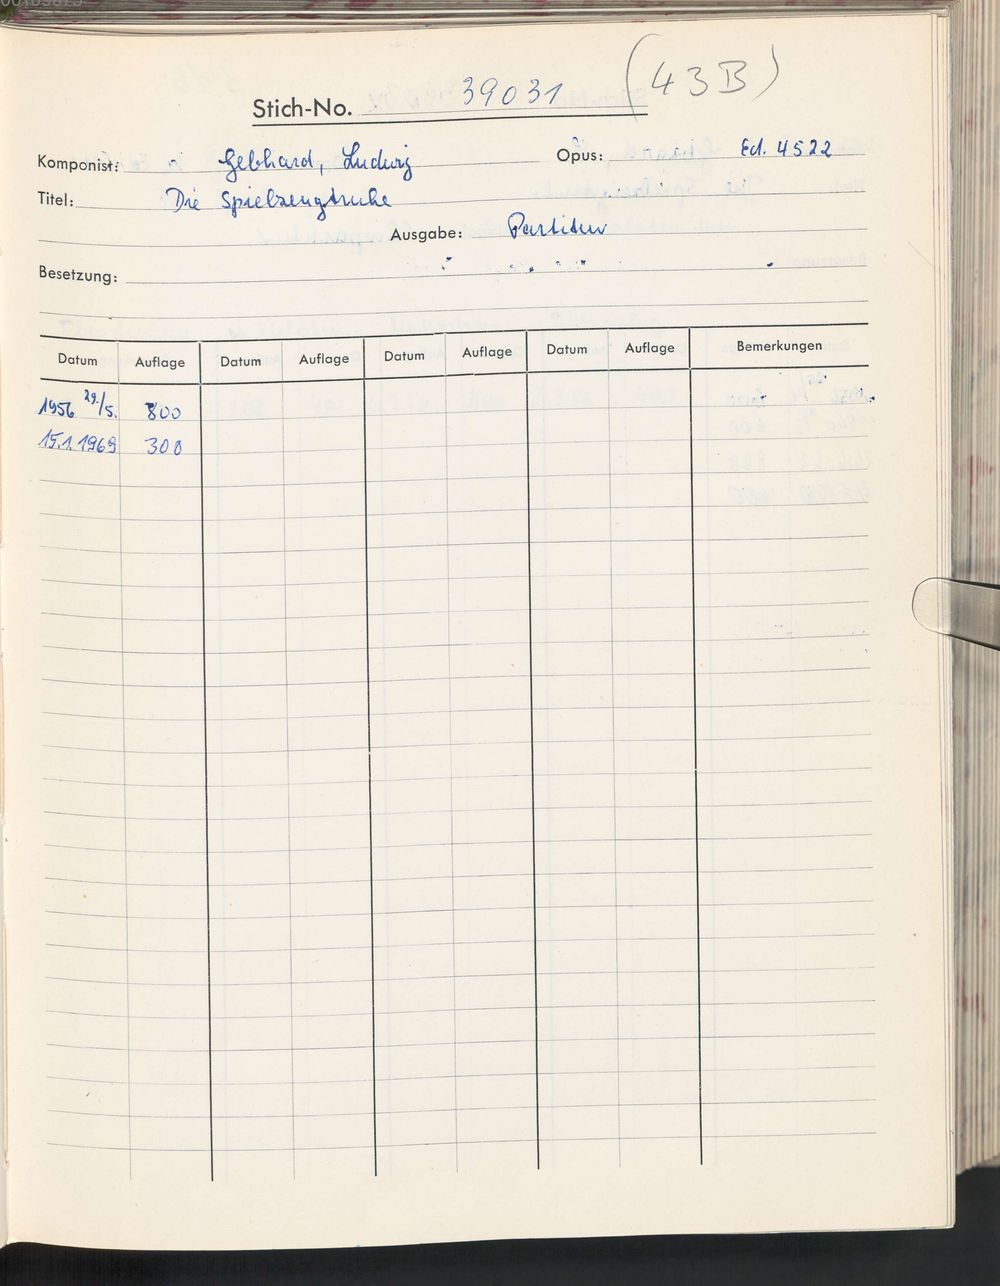 (43B)
Stich-No. 39031
Komponist: Gebhard, Ludwig Opus: Ed. 4522
Titel: Die Spielzeugtruhe
Ausgabe: Partitur
Besetzung:
Datum Auflage Datum Auflage Datum Auflage Datum Auflage Bemerkungen
1956 29./5. 800
15.1.1969 300